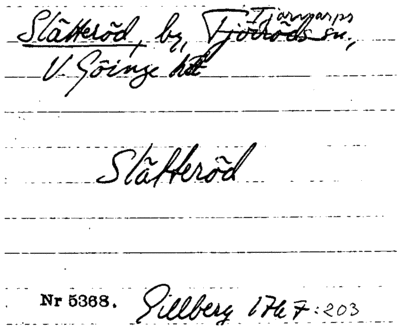 Slätteröd, by, Tjörröds sn.,
V. Göinge hd
Slätteröd
Nr 5368. Gillberg 1767:203